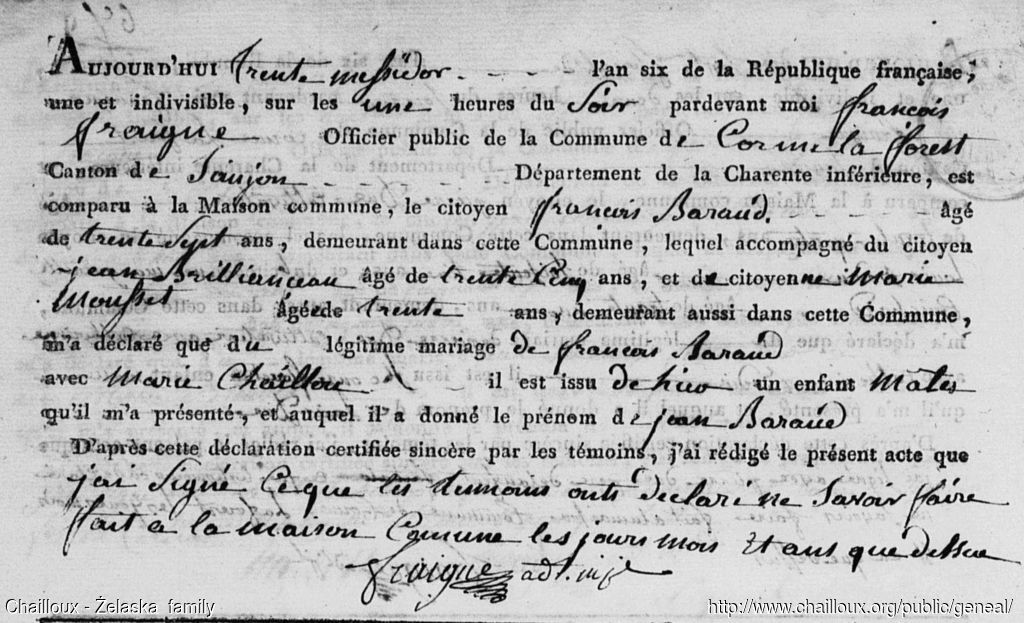 AUJOURD'HUI trente messidor. - - - l'an six de la République française,
une et indivisible, sur les une heures du Soir pardevant moi françois
fraigne Officier public de la Commune de Corme la forest
Canton de Saujon - - - - - - - Département de la Charente inférieure, est
comparu à la Maison commune, le citoyen françois Baraud. - - - - - âgé
de trente Sept ans, demeurant dans cette Commune, lequel accompagné du citoyen
jean Brillianceau âgé de trente Cinq ans, et de citoyenne Marie
Mousset âgée de trente ans, demeurant aussi dans cette Commune,
m'a déclaré que du légitime mariage de francois Baraud
avec Marie Chaillou - - - il est issu de hier un enfant Mâles
qu'il m'a présenté, et auquel il a donné le prénom de jean Baraud
D'après cette déclaration certifiée sincère par les témoins, j'ai rédigé le présent acte que
jai Signé Ceque les temoins onts declaré ne Savoir faire
fait a la maison Comune les jours mois Et ans que dessue
fraigne
Chailloux - Żelaska family
http://www.chailloux.org/public/geneal/